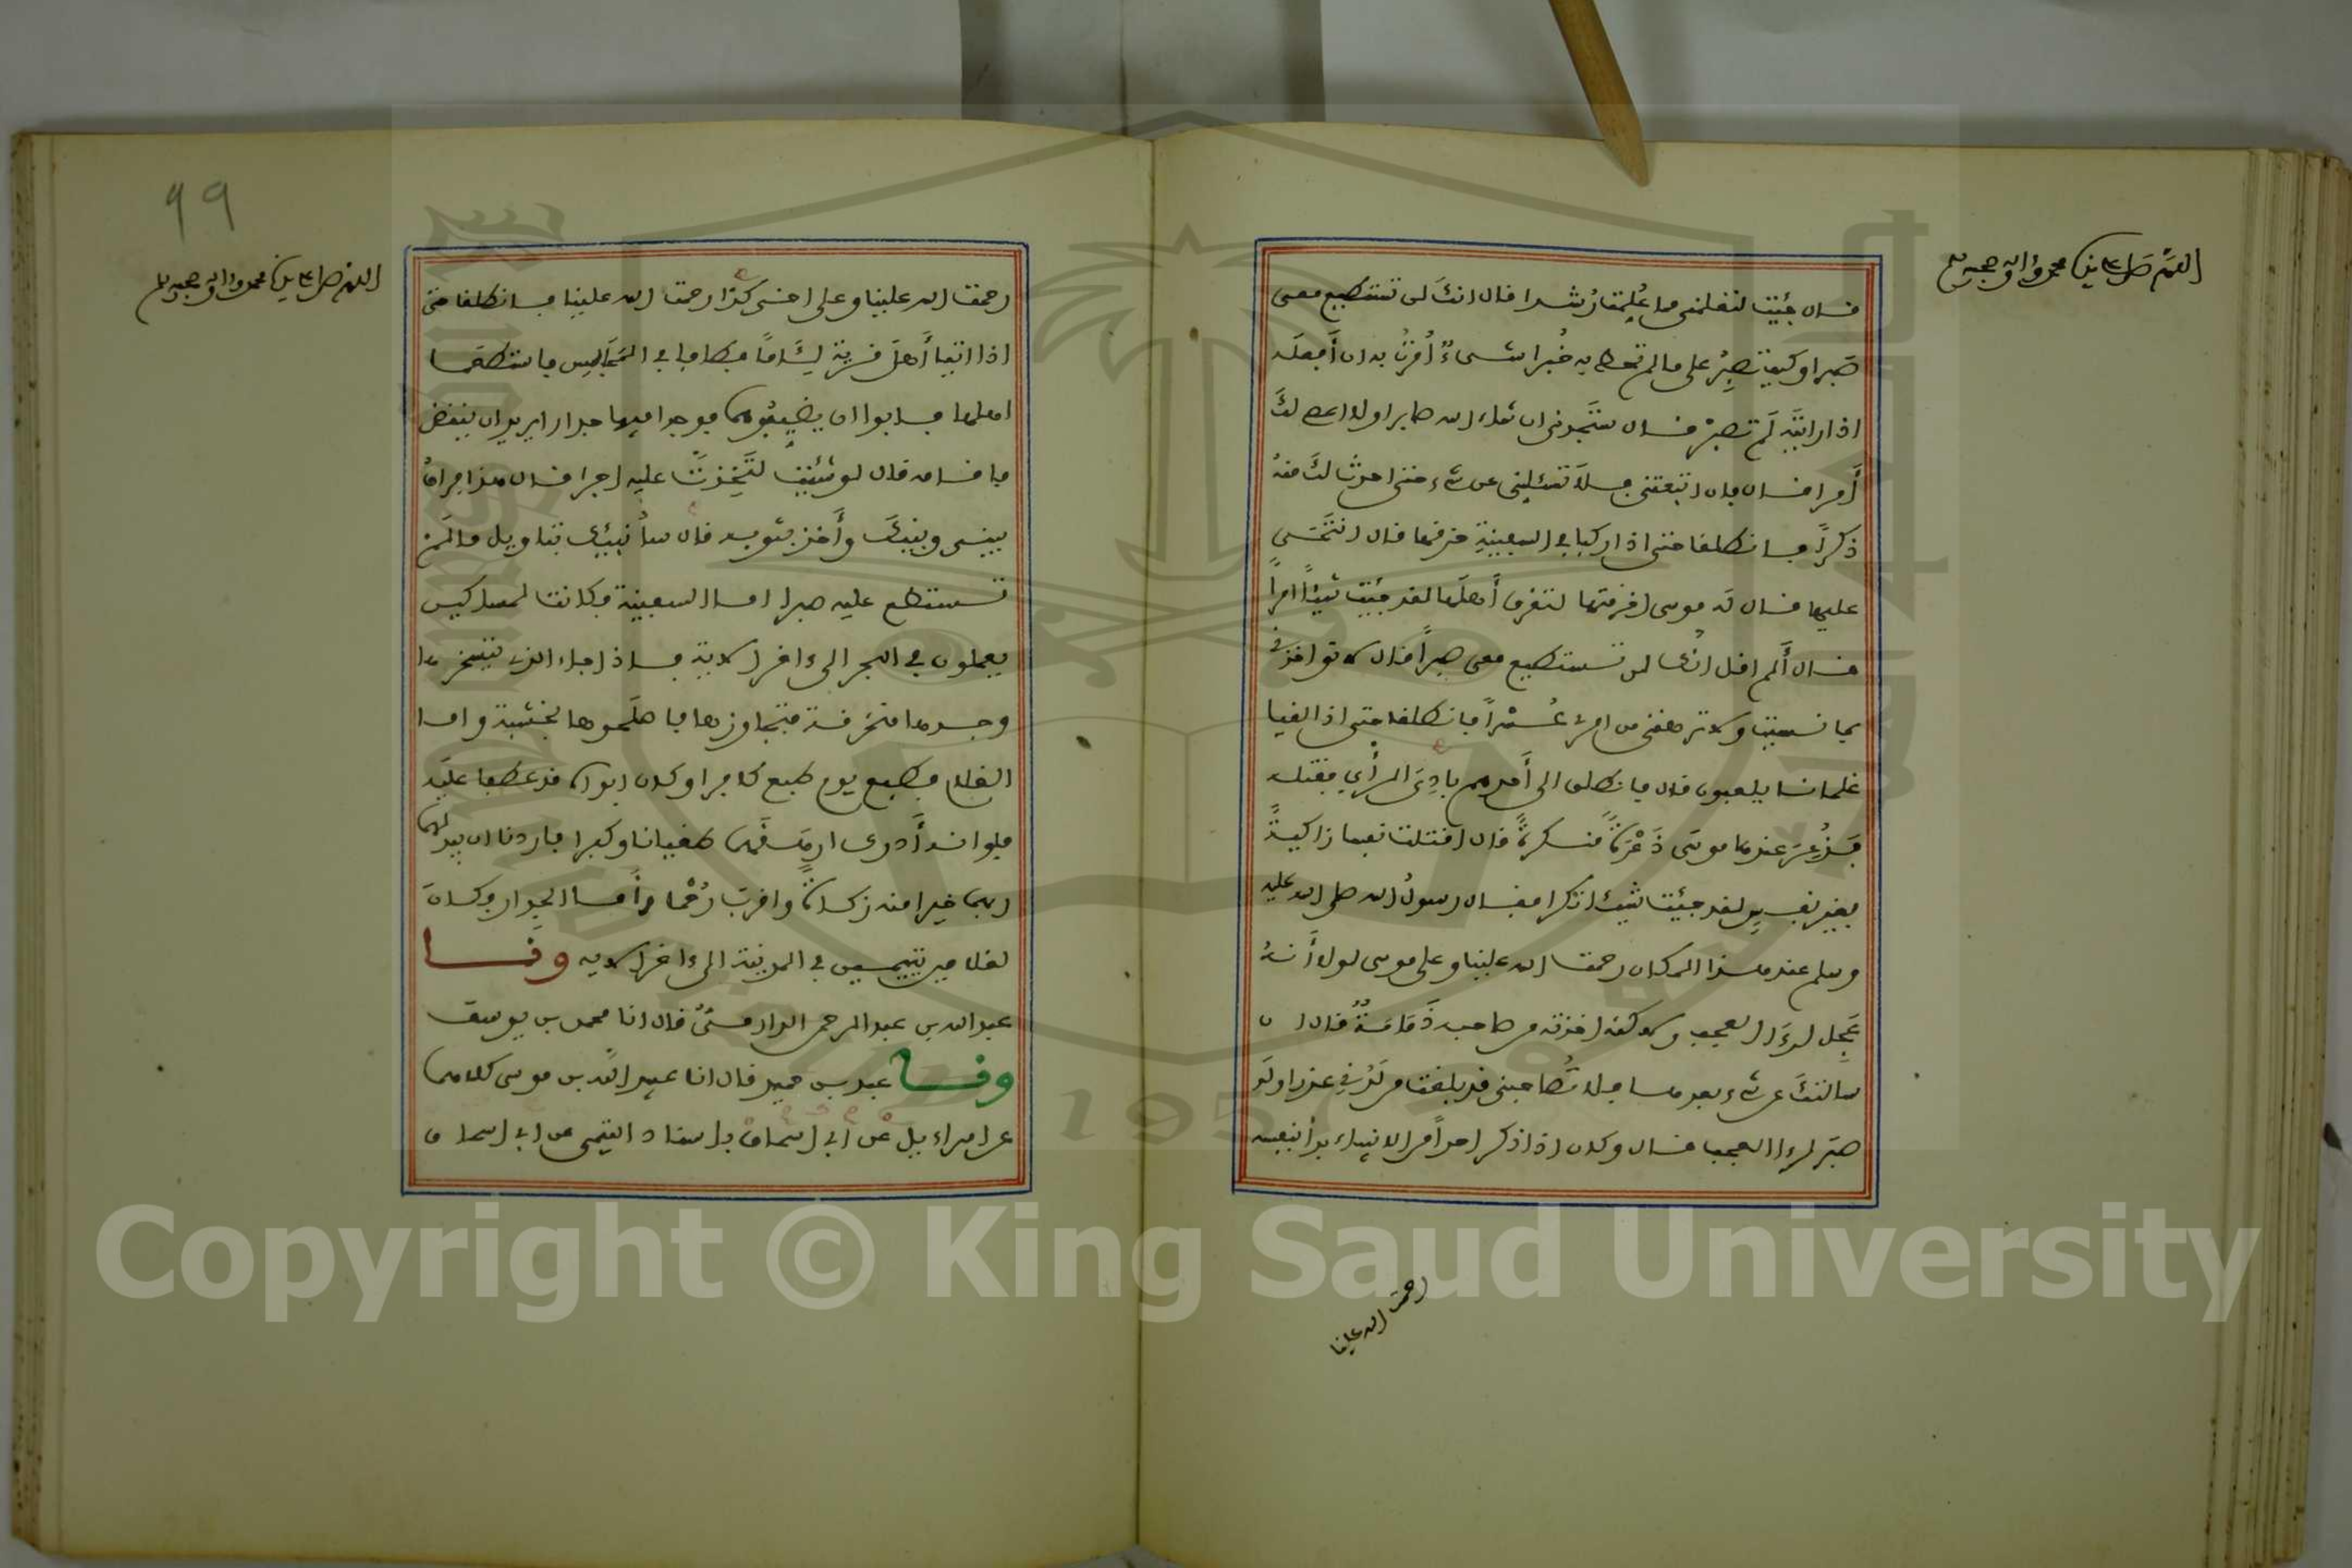 اللهم صل على سيدنا محمد وءاله وصحبه وسلم
فال جئت لتعلمنى مما عُلِّمتَ رُشدا فال انكَ لن تستطيع معى
صَبرا وكيف تصبِرُ على ما لم تحط به خُبرا شىءٌ أُمِرتُ به ان أَفعلَه
اذا رايتَه لَم تصبِرْ فال ستَجدنى ان شاء الله صابرا ولا اعصى لكَ
أَمرا فال فإن اتبعتنى فلا تسئلنى عن شىء حتى احدثَ لكَ منهُ
ذكراً فانطلفا حتى اذا ركبا في السفينةِ خرفها فال انتَحَى
عليها فال لَه موسى اخرفتها لتغرق أَهلَها لفد جئتَ شيئاً امراً
فال أَلم افل انك لن تستطيع معى صبراً فال لا تواخذنى
بما نسيتُ ولا ترهفنى من امرى عُسْراً فانطلفا حتى اذا لفيا
غلمانا يلعبون فال فانطلق الى أَحدهم بادِىَ الرأي ففتله
فَذُعِرَ عندها موسَى ذَعْرَةً مُنكرةً فال افتلتَ نفسا زاكيةً
بغير نفسٍ لفد جئتَ شيئا نكرا ففال رسولُ الله صلى الله عليه
وسلم عند هذا المكان رحمتُ الله علينا وعلى موسى لولا أَنهُ
عَجِل لرءَا العجب ولاكنه اخذته من صاحبه ذَمَامَةٌ فال ان
سألتكَ عن شىء بعدها فلا تُصاحبنى فد بلغتَ من لَدُنِّي عذرا ولَو
صبَر لرءا العجب فال وكان اذا ذكر احداً من الانبياء بدأ بنفسه
رحمتُ الله علينا
99
اللهم صل على سيدنا محمد وءاله وصحبه وسلم
رحمت الله علينا وعلى اخى كذا رحمت الله علينا فانطلفا حتى
اذا اتيا أَهلَ فرية لِئَاماً فطافا في المَجَالِس فاستطعما
اهلها فابوا ان يضيفُوهما فوجدا فيها جدارا يريد ان ينفض
فافامه فال لو شئتَ لتَّخِذتَ عليه اجرا فال هذا فِراقُ
بينى وبينكَ وأَخذ بثوبه فال سأُنبئك بتاويل ما لَم
تستطع عليه صبرا اما السفينة فكانت لمساكين
يعملون في البحر الى ءاخر الاية فاذا جاء الذى يسخرها
وجدها منخرفة فتجاوزها فاصلحوها بخشبة واما
الغلام فطبع يوم طبع كافرا وكان ابواه فد عطفا عليه
فلو انه أَدرك ارهَفَهما طغيانا وكفرا فاردنا ان يبدلهما
ربهما خيرا منه زكاةً وافربَ رُحْما وأَما الجدار فكان
لغلامين يتيمين في المدينة الى ءاخر الايه وفا
عبد الله بن عبد الرحمن الدارمىُّ فال انا محمد بن يوسف
وفا عبد بن حميد فال انا عبيد الله بن موسى كلاهما
عن اسراءيل عن ابى اسحاق باسناد التيمى عن ابى اسحاق
رحمتُ الله علينا
Copyright © King Saud University
1957